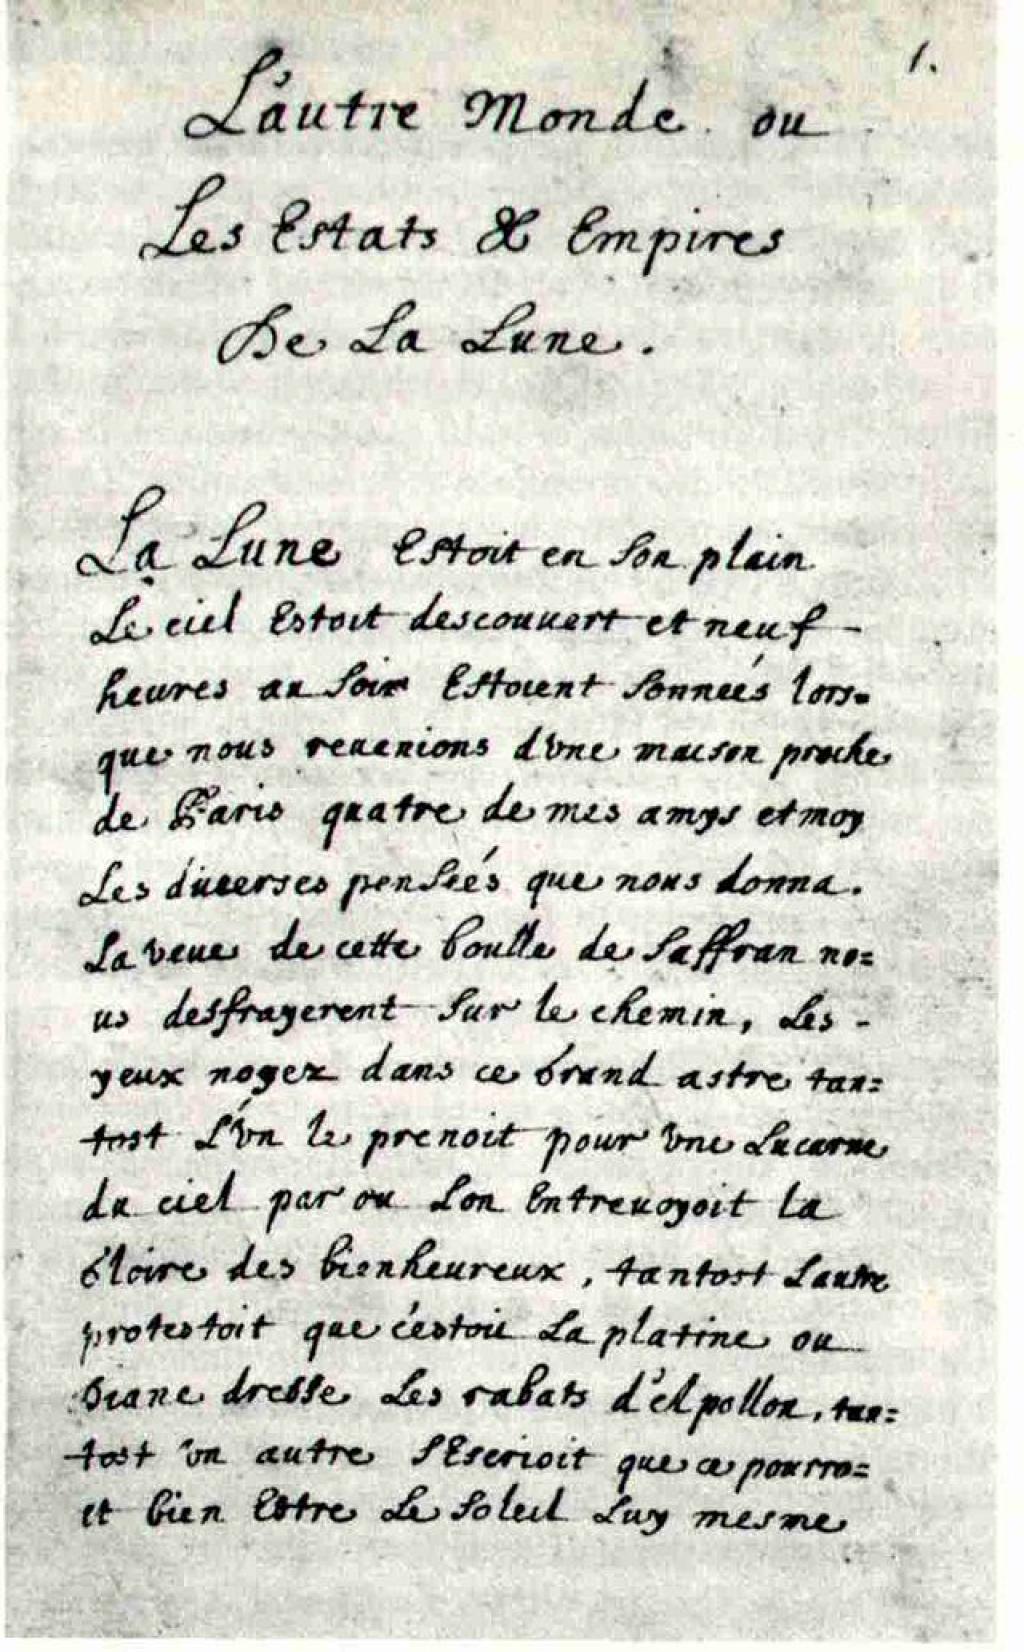 1.
L'autre Monde ou
Les Estats & Empires
De La Lune.
La Lune Estoit en son plain
Le ciel Estoit descouuert et neuf
heures au soir Estoient sonneés lors-
que nous reuenions d'vne maison proche
de Paris quatre de mes amys et moy
Les diuerses penseés que nous donna.
La veue de cette boulle de saffran no=
us desfrayerent sur le chemin, Les -
yeux noyez dans ce Grand astre tan=
tost L'vn le prenoit pour vne Lucarne
du ciel par ou Lon Entreuoyoit La
Gloire des bienheureux, tantost Lautre
protestoit que c'estoit La platine ou
Diane dresse Les rabats d'Apollon, tan=
tost vn autre s'Escrioit que ce pourro=
it bien Estre Le soleil Luy mesme